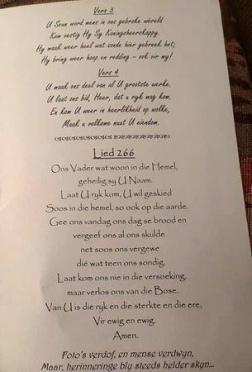 Vers 3
U Seun word mens in ons gebroke wêreld
Kom vestig Hy Sy Koningsheerskappy.
Hy maak weer heel wat sonde hier gebreek het;
Hy bring weer hoop en redding – ook vir my!
Vers 4
U maak ons deel van al U grootste werke.
U laat ons bid, Heer, dat u ryk mag kom.
En kom U weer in heerlikheid op wolke,
Maak u volkome mens U eiendom.
Lied 266
Ons Vader wat woon in die Hemel,
geheilig sy U Naam.
Laat U ryk kom, U wil geskied
Soos in die hemel, so ook op die aarde.
Gee ons vandag ons dag se brood en
vergeef ons al ons skulde
net soos ons vergewe
dié wat teen ons sondig,
Laat kom ons nie in die versoeking,
maar verlos ons van die Bose.
Van U is die ryk en die sterkte en die ere,
Vir ewig en ewig.
Amen.
Foto's verdof, en mense verdwyn,
Maar, herinneringe bly steeds helder skyn...